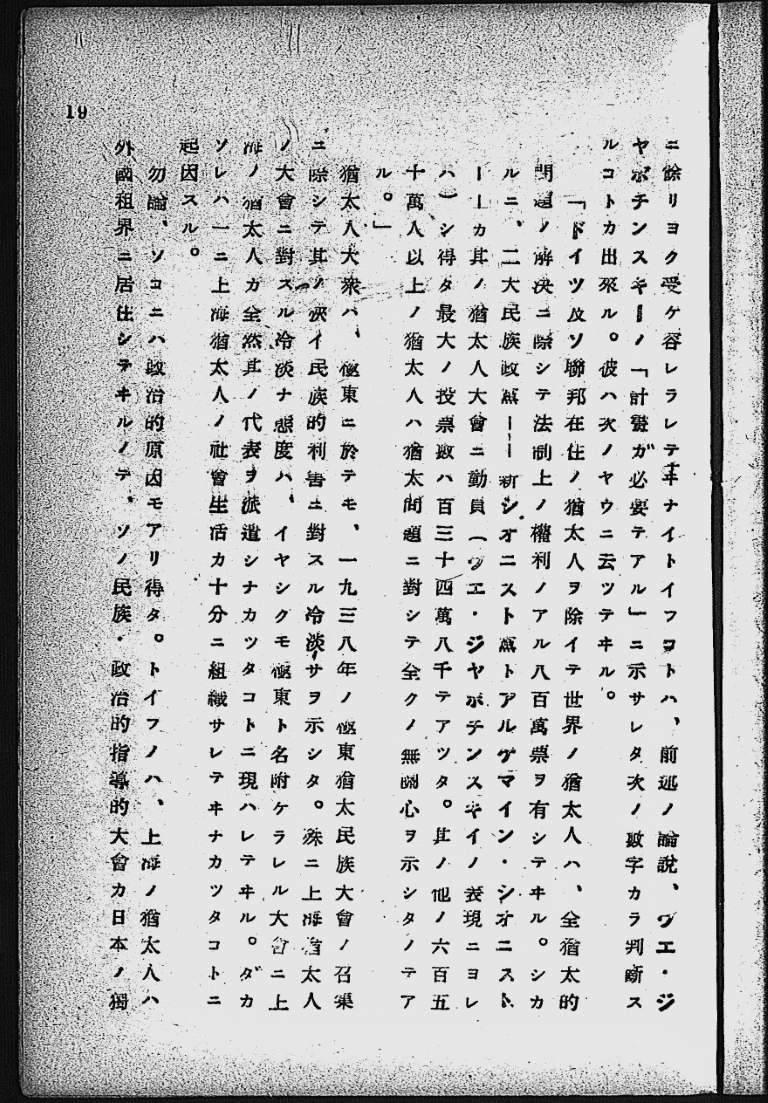 ニ餘リヨク受ケ容レラレテヰナイトイフコトハ、前述ノ論説、ヴエ・ジ
ヤボチンスキーノ「計畫ガ必要テアル」ニ示サレタ次ノ數字カラ判斷ス
ルコトカ出來ル。彼ハ次ノヤウニ云ツテヰル。
「ドイツ及ソ聯邦在住ノ猶太人ヲ除イテ世界ノ猶太人ハ、全猶太的
問題ノ解決ニ際シテ法制上ノ權利ノアル八百萬票ヲ有シテヰル。シカ
ルニ、二大民族政黨——新シオニスト黨トアルゲマイン・シオニスト
——カ其ノ猶太人大會ニ動員(ヴエ・ジヤボチンスキイノ表現ニヨレ
ハ)シ得タ最大ノ投票數ハ百三十四萬八千テアツタ。其ノ他ノ六百五
十萬人以上ノ猶太人ハ猶太問題ニ對シテ全クノ無關心ヲ示シタノテア
ル。」
猶太人大衆ハ、極東ニ於テモ、一九三八年ノ極東猶太民族大會ノ召集
ニ際シテ其ノ狹イ民族的利害ニ對スル冷淡サヲ示シタ。殊ニ上海猶太人
ノ大會ニ對スル冷淡ナ態度ハ、イヤシクモ極東ト名附ケラレル大會ニ上
海ノ猶太人カ全然其ノ代表ヲ派遣シナカツタコトニ現ハレテヰル。ダカ
ソレハ一ニ上海猶太人ノ社會生活カ十分ニ組織サレテヰナカツタコトニ
起因スル。
勿論、ソコニハ政治的原因モアリ得タ。トイフノハ、上海ノ猶太人ハ
外國租界ニ居住シテヰルノテ、ソノ民族・政治的指導的大會カ日本ノ獨
19